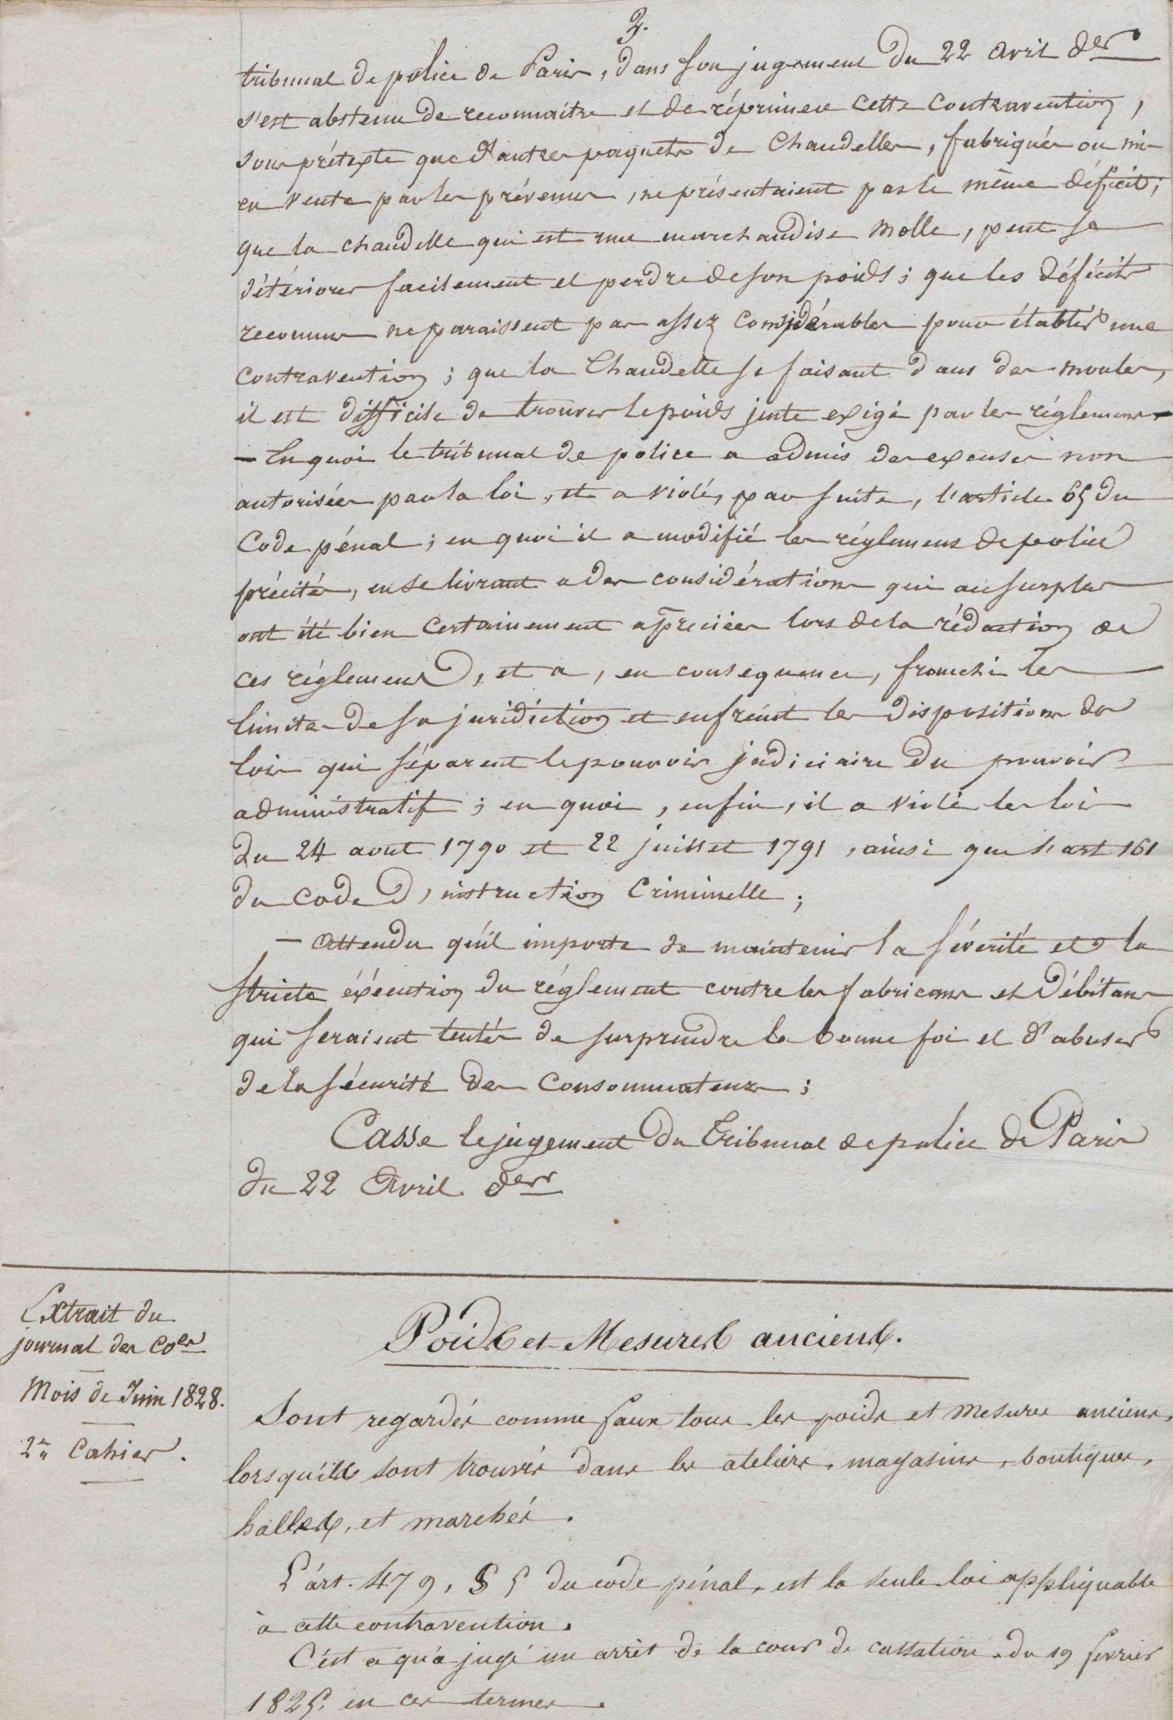 2.
tribunal de police de Paris, dans son jugement du 22 avril der
s'est abstenu de reconnaitre et de réprimer cette contravention,
sous prétexte que d'autres paquets de Chandelles, fabriqués ou mis
en vente par les prévenus, ne présentaient pas le même déficit;
que la chandelle qui est une marchandise molle, peut se
détériorer facilement et perdre de son poids; que les déficits
reconnus ne paraissent pas assez considérables pour établir une
contravention; que la Chandelle se faisant dans des moules,
il est difficile de trouver le poids juste exigé par les réglemens
— En quoi le tribunal de police a admis des excuses non
autorisées par la loi, et a violé, par suite, l'article 65 du
Code pénal; en quoi il a modifié les réglemens de police
précités, en se livrant a des considérations qui au surplus
ont été bien certainement apreciées lors de la rédaction de
ces réglemens, et a, en consequence, franchi les
limites de sa juridiction et enfreint les dispositions des
lois qui séparent le pouvoir judiciaire du pouvoir
administratif; en quoi, enfin, il a violé les lois
du 24 aout 1790 et 22 juillet 1791, ainsi que l'art 161
du code d'instruction Criminelle;
— Attendu qu'il importe de maintenir la sévérité et la
stricte éxécution du réglement contre les fabricans et débitans
qui seraient tentés de surprendre la bonne foi et d'abuser
de la sécurité des consommateurs;
Casse le jugement du Tribunal de police de Paris
du 22 Avril der
Extrait du
journal des Coes
Mois de Juin 1828.
2e Cahier.
Poids et Mesures anciens.
Sont regardés comme faux tous les poids et mesures anciens,
lorsqu'ils sont trouvés dans les ateliers, magasins, boutiques,
halles, et marchés.
L'art. 479, § 5 du code pénal, est la seule loi appliquable
à cette contravention.
C'est ce qu'a jugé un arrêt de la cour de cassation du 19 fevrier
1825 en ces termes.